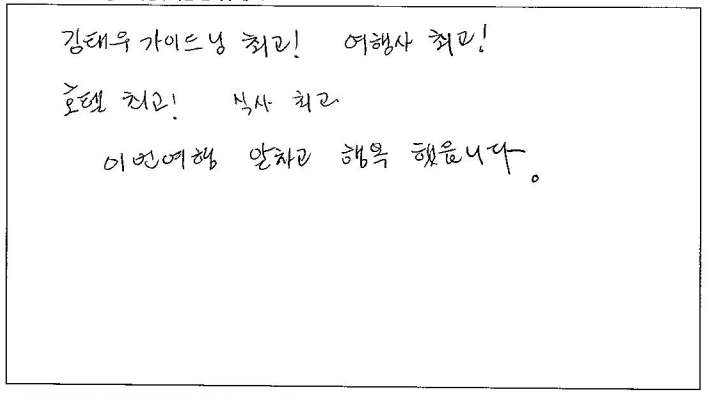 김태우 가이드님 최고! 여행사 최고!
호텔 최고! 식사 최고
이번여행 알차고 행복 했읍니다.